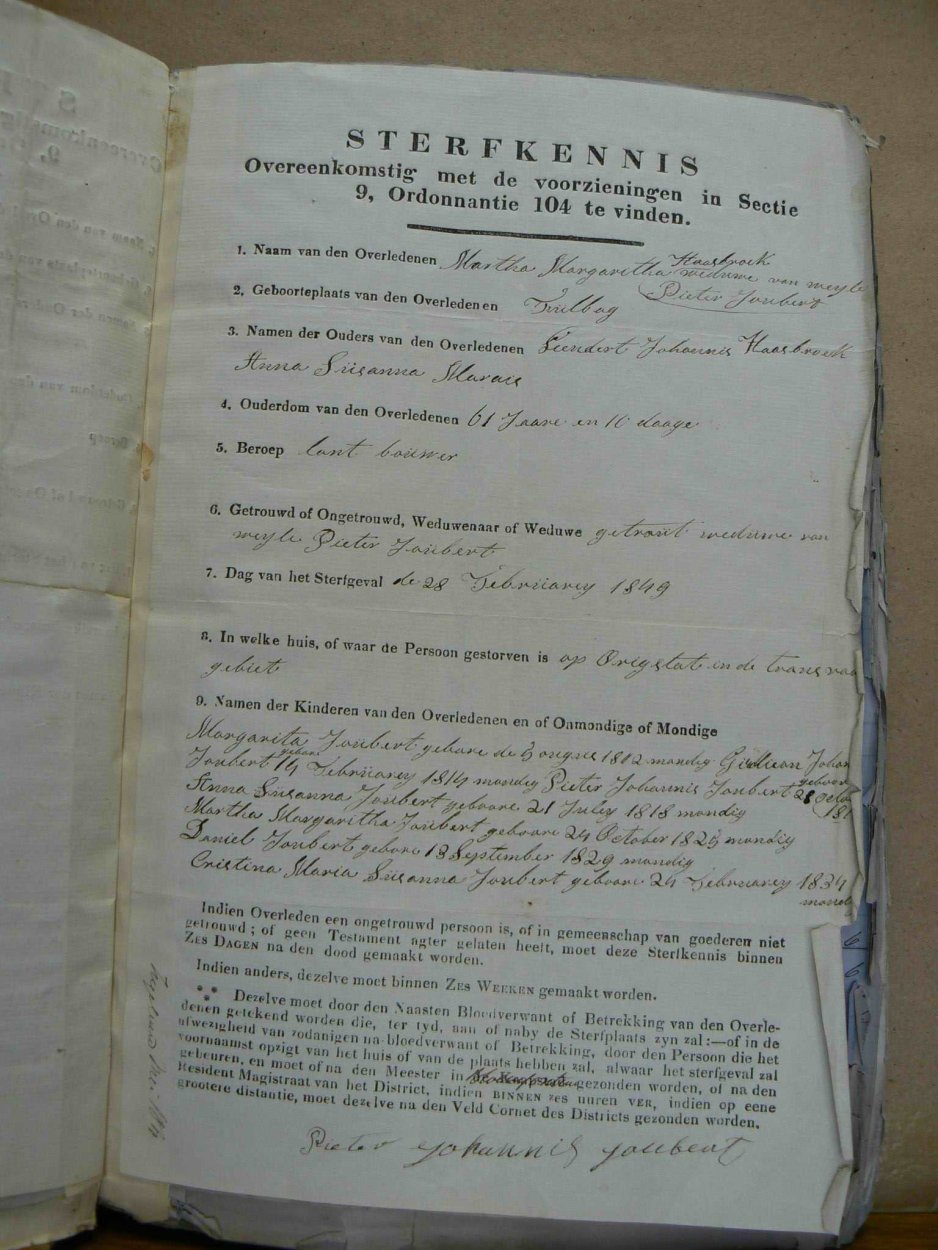 STERFKENNIS
Overeenkomstig met de voorzieningen in Sectie
9, Ordonnantie 104 te vinden.
1. Naam van den Overledenen Martha Margaritha Haasbroek
weduwe van weyle
Pieter Joubert
2. Geboorteplaats van den Overledenen Tulbag
3. Namen der Ouders van den Overledenen Leendert Johannis Haasbroek
Anna Susanna Marais
4. Ouderdom van den Overledenen 61 Jaare en 10 daage
5. Beroep lant bouwer
6. Getrouwd of Ongetrouwd, Weduwenaar of Weduwe getrout weduwe van
weyle Pieter Joubert
7. Dag van het Sterfgeval de 28 Februarey 1849
8. In welke huis, of waar de Persoon gestorven is op Origstat in de trans vaa
gebiet
9. Namen der Kinderen van den Overledenen en of Onmondige of Mondige
Margarita Joubert gebore de 3 1812 mondig Gideon Johan
Joubert geboore 14 Februarey 1814 mondig Pieter Johannis Joubert geboore 28 Octo 181
Anna Susanna Joubert geboore 21 July 1818 mondig
Martha Margaritha Joubert geboore 24 October 1825 mondig
Daniel Joubert gebore 13 September 1829 mondig
Cristina Maria Susanna Joubert geboore 24 Februarey 1834
mondi
Indien Overleden een ongetrouwd persoon is, of in gemeenschap van goederen niet
getrouwd; of geen Testament agter gelaten heeft, moet deze Sterfkennis binnen
ZES DAGEN na den dood gemaakt worden.
Indien anders, dezelve moet binnen ZES WEEKEN gemaakt worden.
⁂ Dezelve moet door den Naasten Bloedverwant of Betrekking van den Overle-
denen getekend worden die, ter tyd, aan of naby de Sterfplaats zyn zal:—of in de
afwezigheid van zodanigen na-bloedverwant of Betrekking, door den Persoon die het
voornaamst opzigt van het huis of van de plaats hebben zal, alwaar het sterfgeval zal
gebeuren, en moet of na den Meester in gezonden worden, of na den
Resident Magistraat van het District, indien BINNEN ZES UUREN VER, indien op eene
grootere distantie, moet dezelve na den Veld Cornet des Districts gezonden worden.
Pieter Johannis Joubert